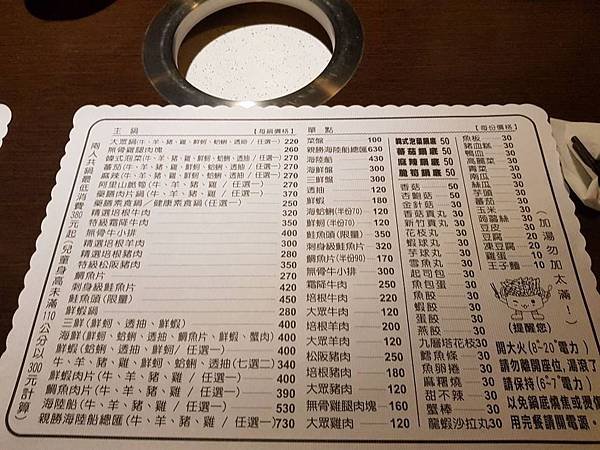 主鍋 【每鍋價格】
大眾鍋(牛、羊、豬、雞、鮮蚵、蛤蜊、透抽 / 任選一) 220
無骨雞腿肉塊 260
韓式泡菜(牛、羊、豬、雞、鮮蚵、蛤蜊、透抽 / 任選一) 270
蕃茄(牛、羊、豬、雞、鮮蚵、蛤蜊、透抽 / 任選一) 270
麻辣(牛、羊、豬、雞、鮮蚵、蛤蜊、透抽 / 任選一) 270
阿里山脆筍(牛、羊、豬、雞 / 任選一) 270
藥膳肉片鍋(牛、羊、豬、雞 / 任選一) 380
藥膳素食鍋／健康素食鍋(任選一) 250
精選培根牛肉 350
特級霜降牛肉 350
無骨牛小排 400
精選培根羊肉 300
精選培根豬肉 280
特級松阪豬肉 350
鯛魚片 270
刺身級鮭魚片 420
鮭魚頭(限量) 450
鮮蝦鍋 280
三鮮(鮮蚵、透抽、鮮蝦) 400
海鮮(鮮蚵、蛤蜊、透抽、鯛魚片、鮮蝦、蟹肉) 400
鮮蝦(蛤蜊、透抽、鮮蚵 / 任選一) 400
牛、羊、豬、雞、鮮蚵、蛤蜊、透抽(七選二) 340
鮮蝦肉片(牛、羊、豬、雞 / 任選一) 400
鯛魚肉片(牛、羊、豬、雞 / 任選一) 390
海陸船(牛、羊、豬、雞 / 任選一) 530
親勝海陸船總匯(牛、羊、豬、雞 / 任選一) 730
兩人共鍋最低消費380元起(兒童身高未滿110公分以300元計算)
單點 【每份價格】
菜盤 100
親勝海陸船總匯 630
海陸船 430
海鮮盤 300
三鮮盤 300
透抽 180
鮮蝦 180
海蛤蜊(半份70) 120
鮮蚵(半份70) 120
鮭魚頭(限量) 350
刺身級鮭魚片 320
鯛魚片(半份90) 170
無骨牛小排 300
霜降牛肉 250
培根牛肉 250
大眾牛肉 120
培根羊肉 200
大眾羊肉 120
松阪豬肉 250
培根豬肉 180
大眾豬肉 120
無骨雞腿肉塊 160
大眾雞肉 120
韓式泡菜鍋底 50
蕃茄鍋底 50
麻辣鍋底 50
脆筍鍋底 50
香菇 50
杏鮑菇 50
金針菇 50
香菇貢丸 30
新竹貢丸 30
花枝丸 30
蝦球丸 30
芋球丸 30
雪魚丸 30
起司包 30
魚包蛋 30
魚餃 30
蝦餃 30
蛋餃 30
燕餃 30
九層塔花枝 30
鱈魚條 30
魚卵捲 30
麻糬燒 30
甜不辣 30
蟹棒 30
龍蝦沙拉丸 30
魚板 30
豬血糕 30
鴨血 30
高麗菜 30
青菜 30
南瓜 30
絲瓜 30
芋頭 30
蕃茄 30
玉米 30
蒟蒻絲 30
豆皮 30
豆腐 20
凍豆腐 20
雞蛋 10
王子麵 10
(加湯勿加太滿！)
(提醒您)
開大火(8~20˚電力)
請勿離開座位,滾滾了
請保持(6~7˚電力)
以免鍋底燒焦或燙傷
用完餐請關電源。